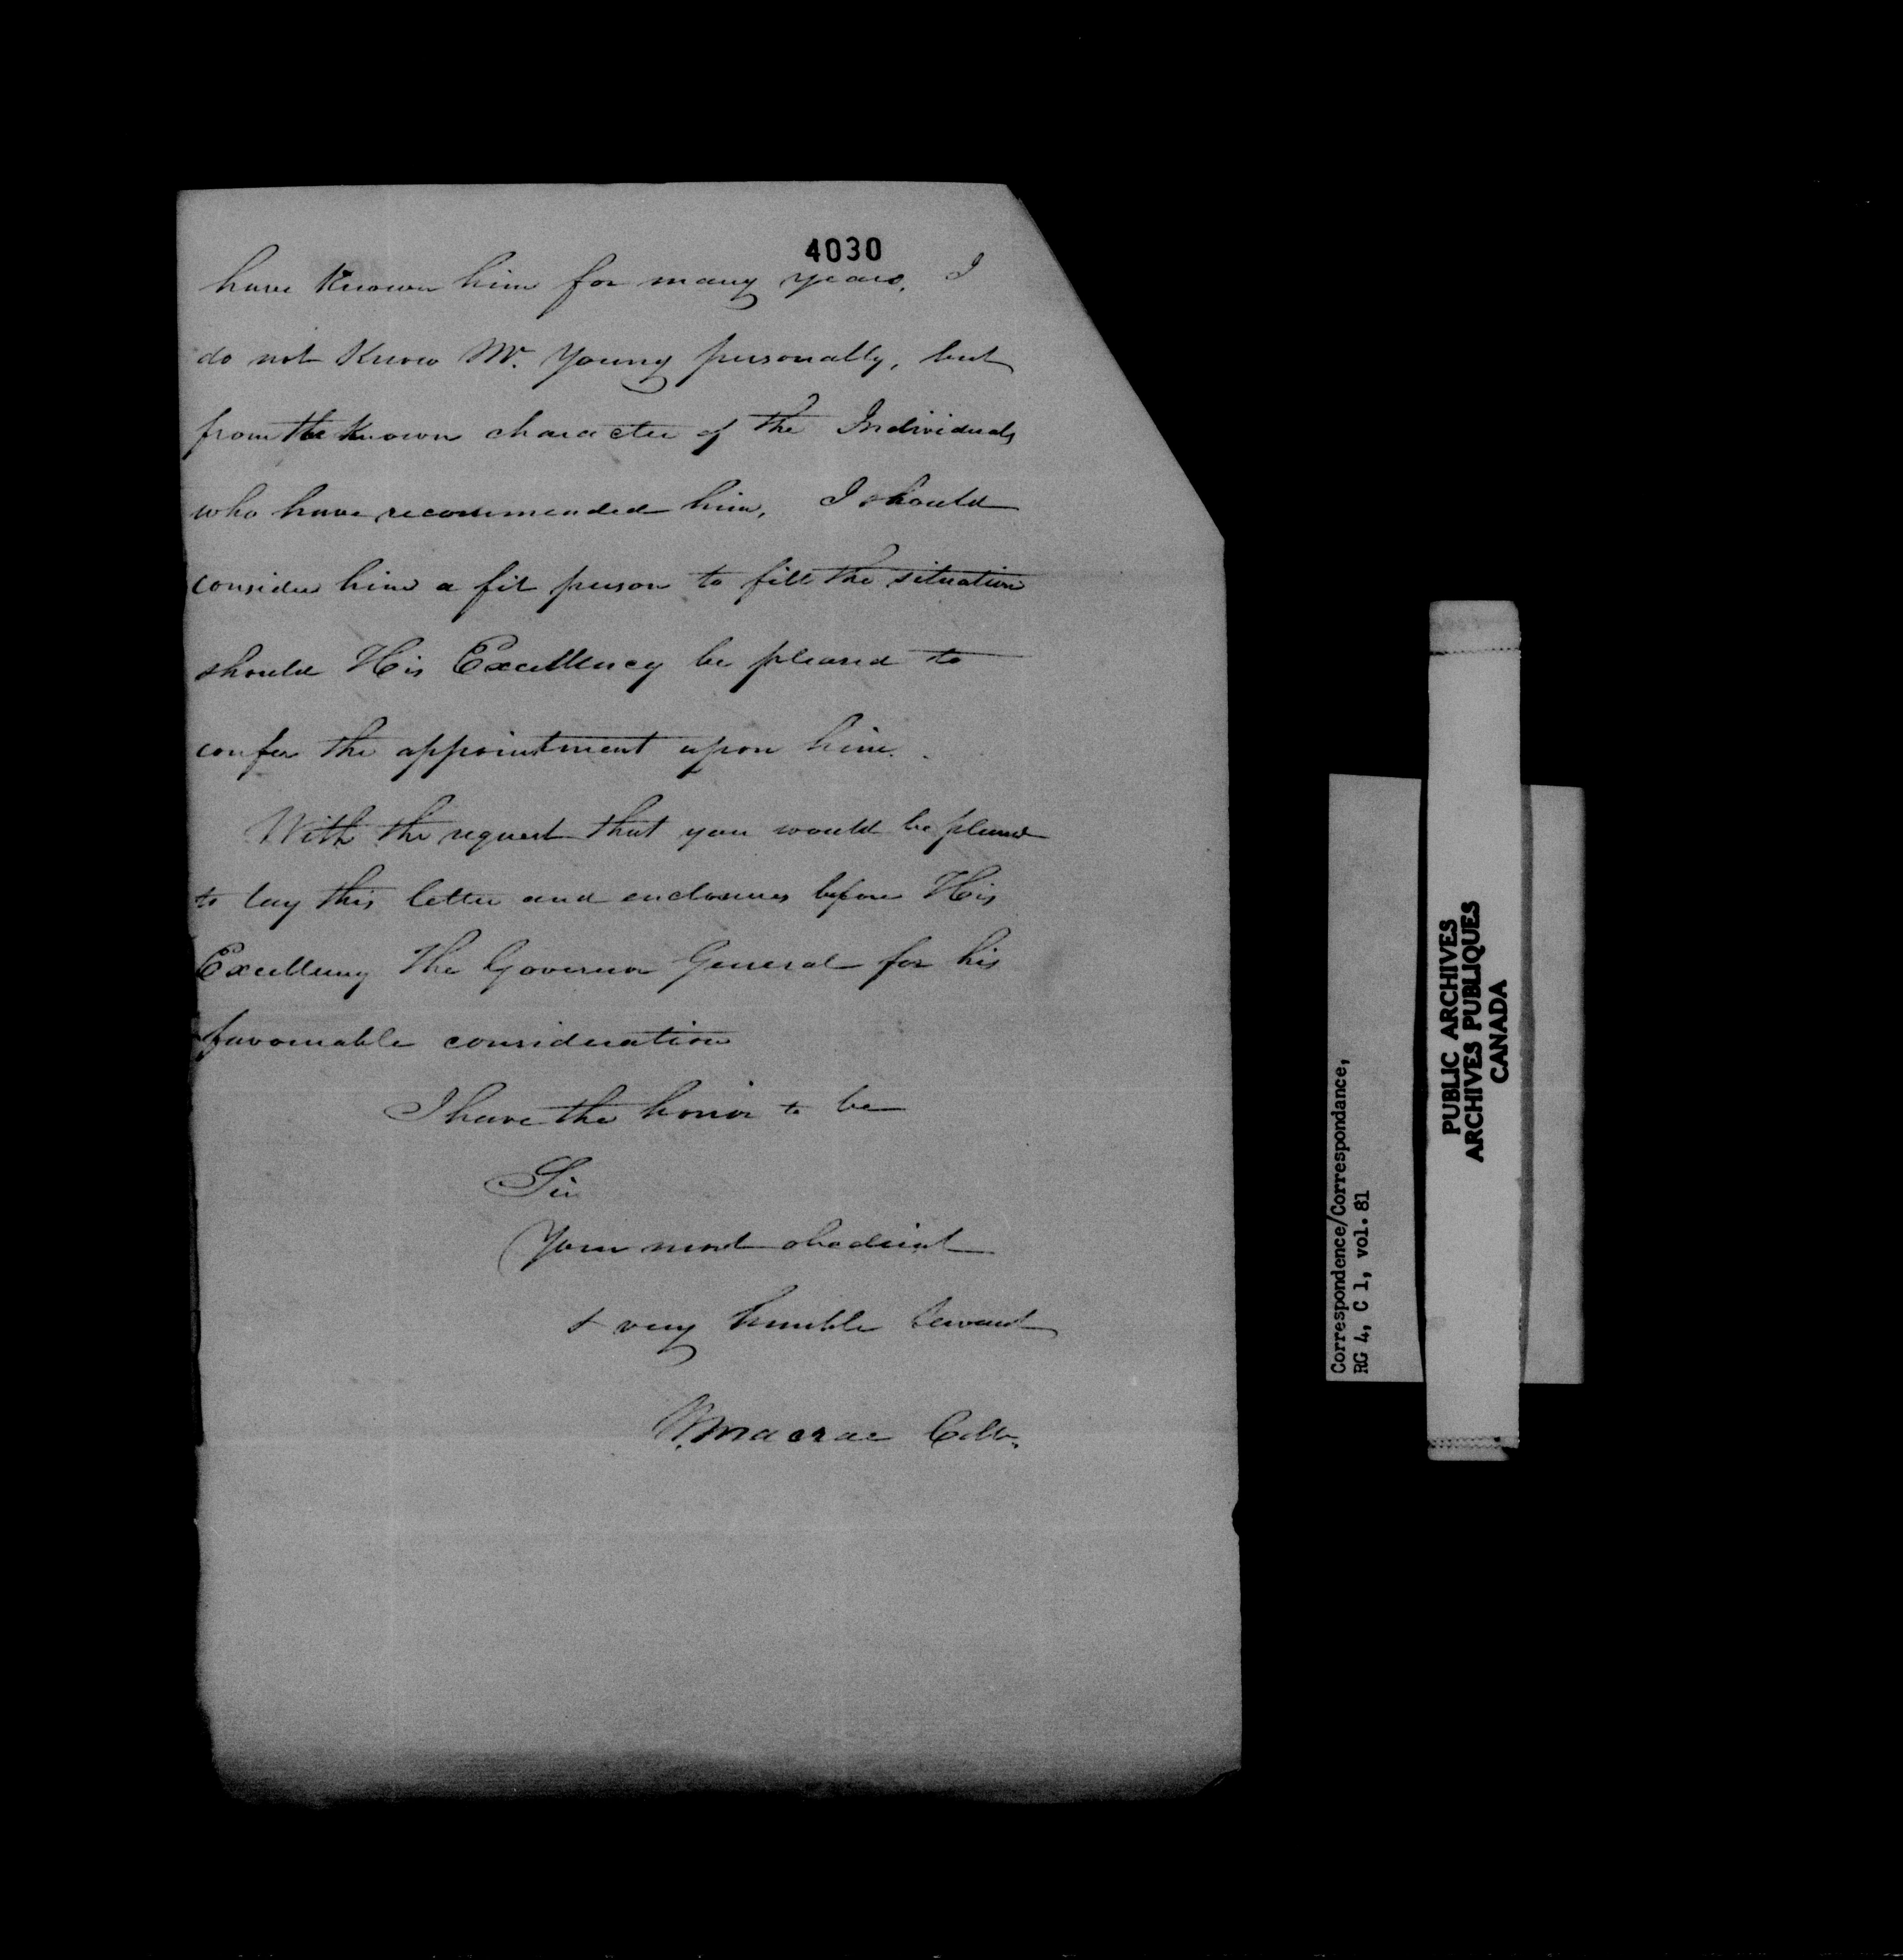 4030
have Known him for many years. I
do not Know Mr. Young personally, but
from the Known character of the Individuals
who have recommended him, I should
consider him a fit person to fill the situation
should His Excellency be pleased to
confer the appointment upon him.
With the request that you would be pleased
to lay this letter and enclosures before His
Excellency The Governor General for his
favourable consideration
I have the honor to be
Sir
Your most obedient
& very humble Servant
Macrae Collr.
Correspondence/Correspondance,
RG 4, C 1, vol. 81
PUBLIC ARCHIVES
ARCHIVES PUBLIQUES
CANADA